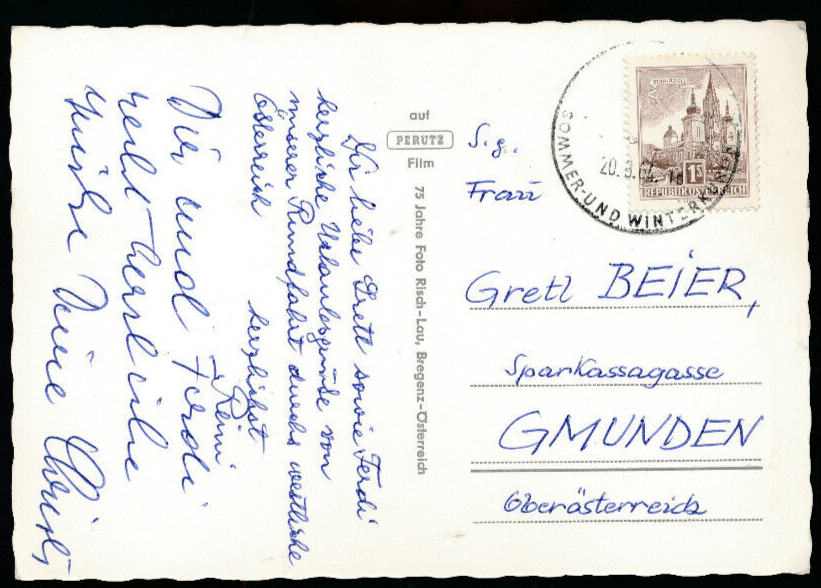 Dir liebe Gretl sowie Ferdi
herzliche Urlaubsgrüße von
unserer Rundfahrt durchs westliche
Österreich
herzlichst
Reini
Dir und Ferdi
recht herzliche
Grüße Deine
auf
PERUTZ
Film
75 Jahre Foto Risch-Lau, Bregenz-Österreich
MARIAZELL
1S
REPUBLIK ÖSTERREICH
SOMMER-UND WINTERKUR
20.3.
S.g.
Frau
Gretl BEIER,
Sparkassagasse
GMUNDEN
Oberösterreich